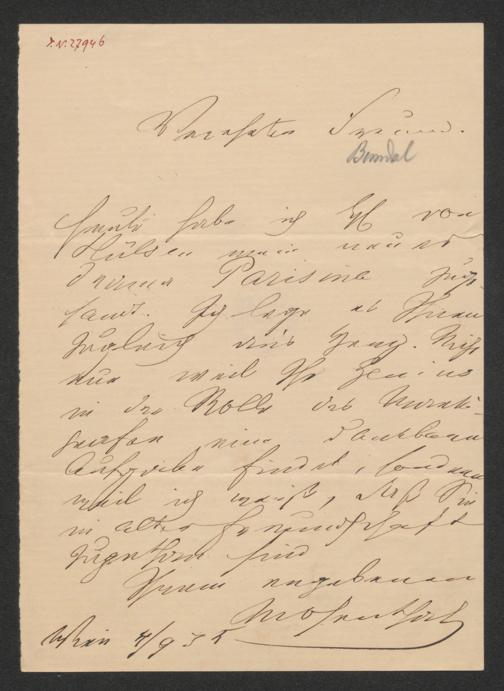 I.N. 27946
Verehrter Freund.
Berndal
Heute habe ich H v von
Hülsen mein neues
Drama Parisina zuge-
sandt. Ich lege es Ihnen
zugleich ans Herz. Nicht
nur weil Ihr Genius
in der Rolle des
grafen eine dankbare
Aufgabe findet, sondern
weil ich weiß, daß Sie
in alter Freundschaft
zugethan sind
Ihrem ergebenen
Mosenthal
Wien 4/9